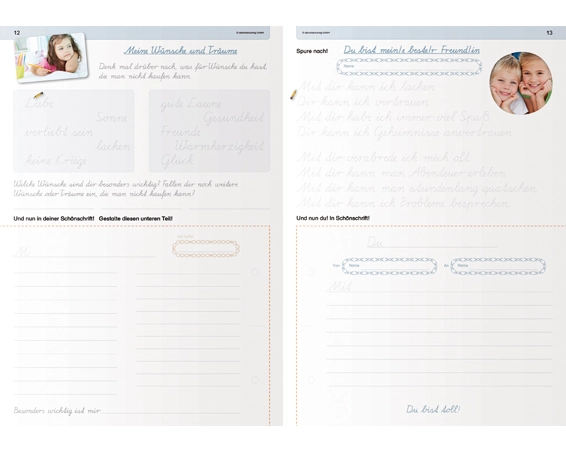 12
© sternchenverlag GmbH
Meine Wünsche und Träume
Denk mal drüber nach, was für Wünsche du hast,
die man nicht kaufen kann.
Liebe
Sonne
verliebt sein
lachen
keine Kriege
gute Laune
Gesundheit
Freunde
Warmherzigkeit
Glück
Welche Wünsche sind dir besonders wichtig? Fallen dir noch weitere
Wünsche oder Träume ein, die man nicht kaufen kann?
Und nun in deiner Schönschrift! Gestalte diesen unteren Teil!
Besonders wichtig ist mir:
© sternchenverlag GmbH
13
Spure nach!
Du bist mein/e beste/r Freund/in
Name
Mit dir kann ich lachen.
Dir kann ich vertrauen.
Mit dir habe ich immer viel Spaß.
Dir kann ich Geheimnisse anvertrauen.
Mit dir verabrede ich mich oft.
Mit dir kann man Abenteuer erleben.
Mit dir kann man stundenlang quatschen.
Mit dir kann ich Probleme besprechen.
Und nun du! In Schönschrift!
Du
Von
Name
An
Name
Mit
Du bist toll!